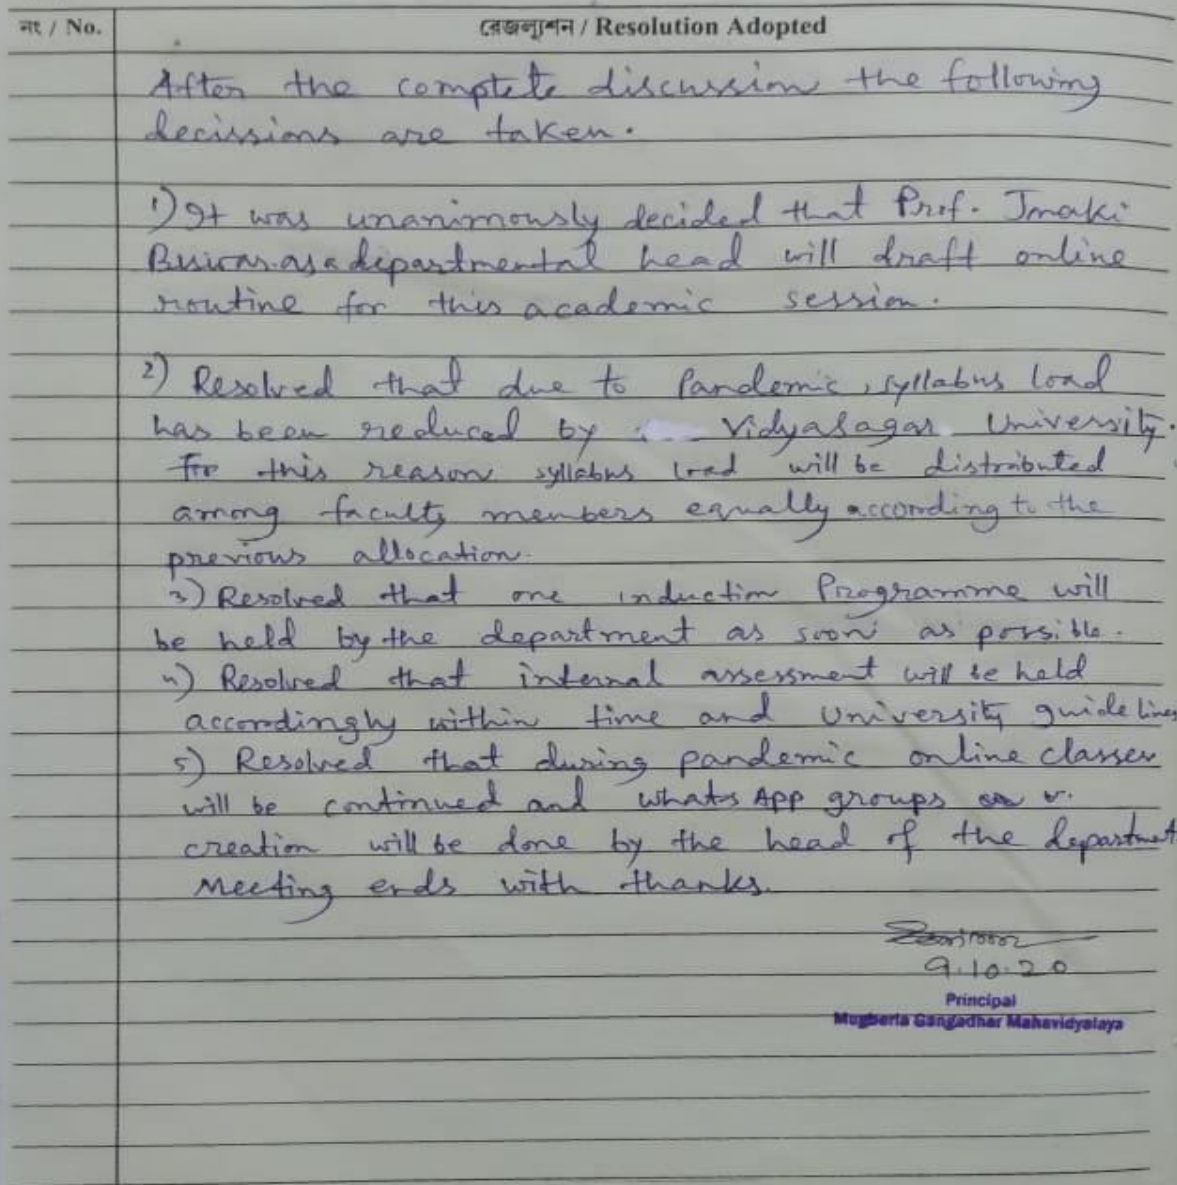 নং / No.
রেজল্যুশন / Resolution Adopted
After the complete discussion the following
decissions are taken.
1) It was unanimously decided that Prof. Jmaki
Biswas as a departmental head will draft online
routine for this academic session.
2) Resolved that due to Pandemic, syllabus load
has been reduced by Vidyasagar University.
For this reason syllabus load will be distributed
among faculty members equally according to the
previous allocation.
3) Resolved that one induction Programme will
be held by the department as soon as possible.
4) Resolved that internal assessment will be held
accordingly within time and University guide lines
5) Resolved that during pandemic online classes
will be continued and whats App groups
creation will be done by the head of the department
Meeting ends with thanks.
9.10.20
Principal
Mugberia Gangadhar Mahavidyalaya